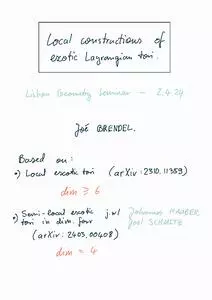 Local constructions of
exotic Lagrangian tori.
Lisbon Geometry Seminar – 2.4.24
Joé BRENDEL.
Based on:
•) Local exotic tori (arXiv:2310.11359)
dim ≥ 6
•) Semi-local exotic j.w/ Johannes HAUBER
tori in dim. four Joel SCHMITZ
(arXiv: 2403.00408)
dim = 4